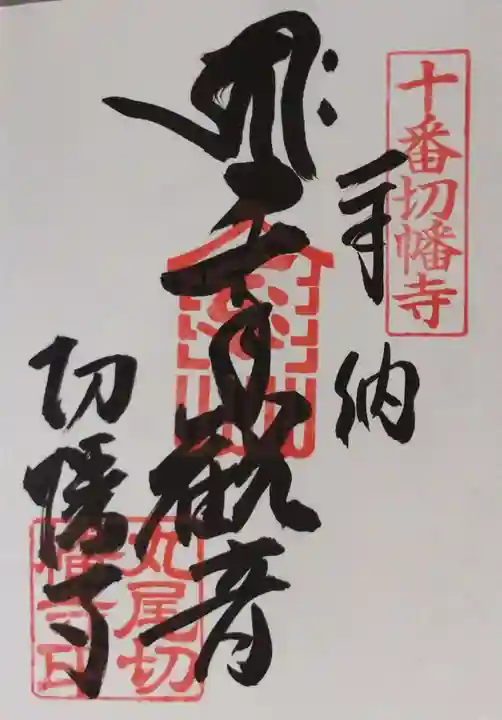 十番切幡寺
奉納
千手観音
切幡寺
丸尾切
幡寺印